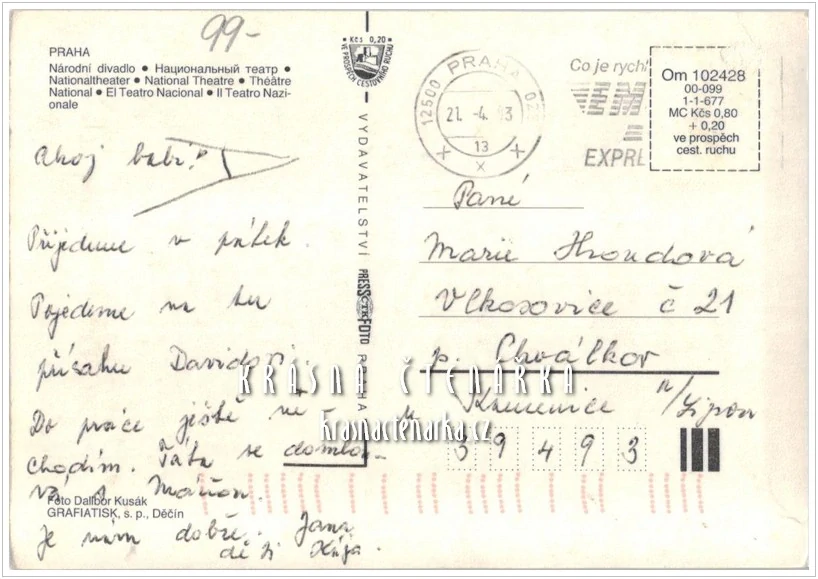 99-
PRAHA
Národní divadlo ● Национальный театр ●
Nationaltheater ● National Theatre ● Théâtre
National ● El Teatro Nacional ● Il Teatro Nazi-
onale
Ahoj babi!
Přijedeme v pátek.
Pojedeme na tu
přísahu Davidovi.
Do práce ještě ne-
chodím. Táta se domlou-
vá s
Foto Dalibor Kusák
GRAFIATISK, s. p., Děčín
Je nám dobře. Jana
Kčs 0,20
VE PROSPĚCH CESTOVNÍHO RUCHU
VYDAVATELSTVÍ PRESSFOTO PRAHA
ČTK
12500 PRAHA 025
21. -4. 93
13
Co je rychl
EM
EXPRE
Om 102428
00-099
1-1-677
MC Kčs 0,80
+ 0,20
ve prospěch
cest. ruchu
Paní
Marie Hroudová
Vlkosovice č 21
p. Chválkov
u Kamenice n/Lipou
39493
KRÁSNÁ ČTENÁŘKA
krasnactenarka.cz